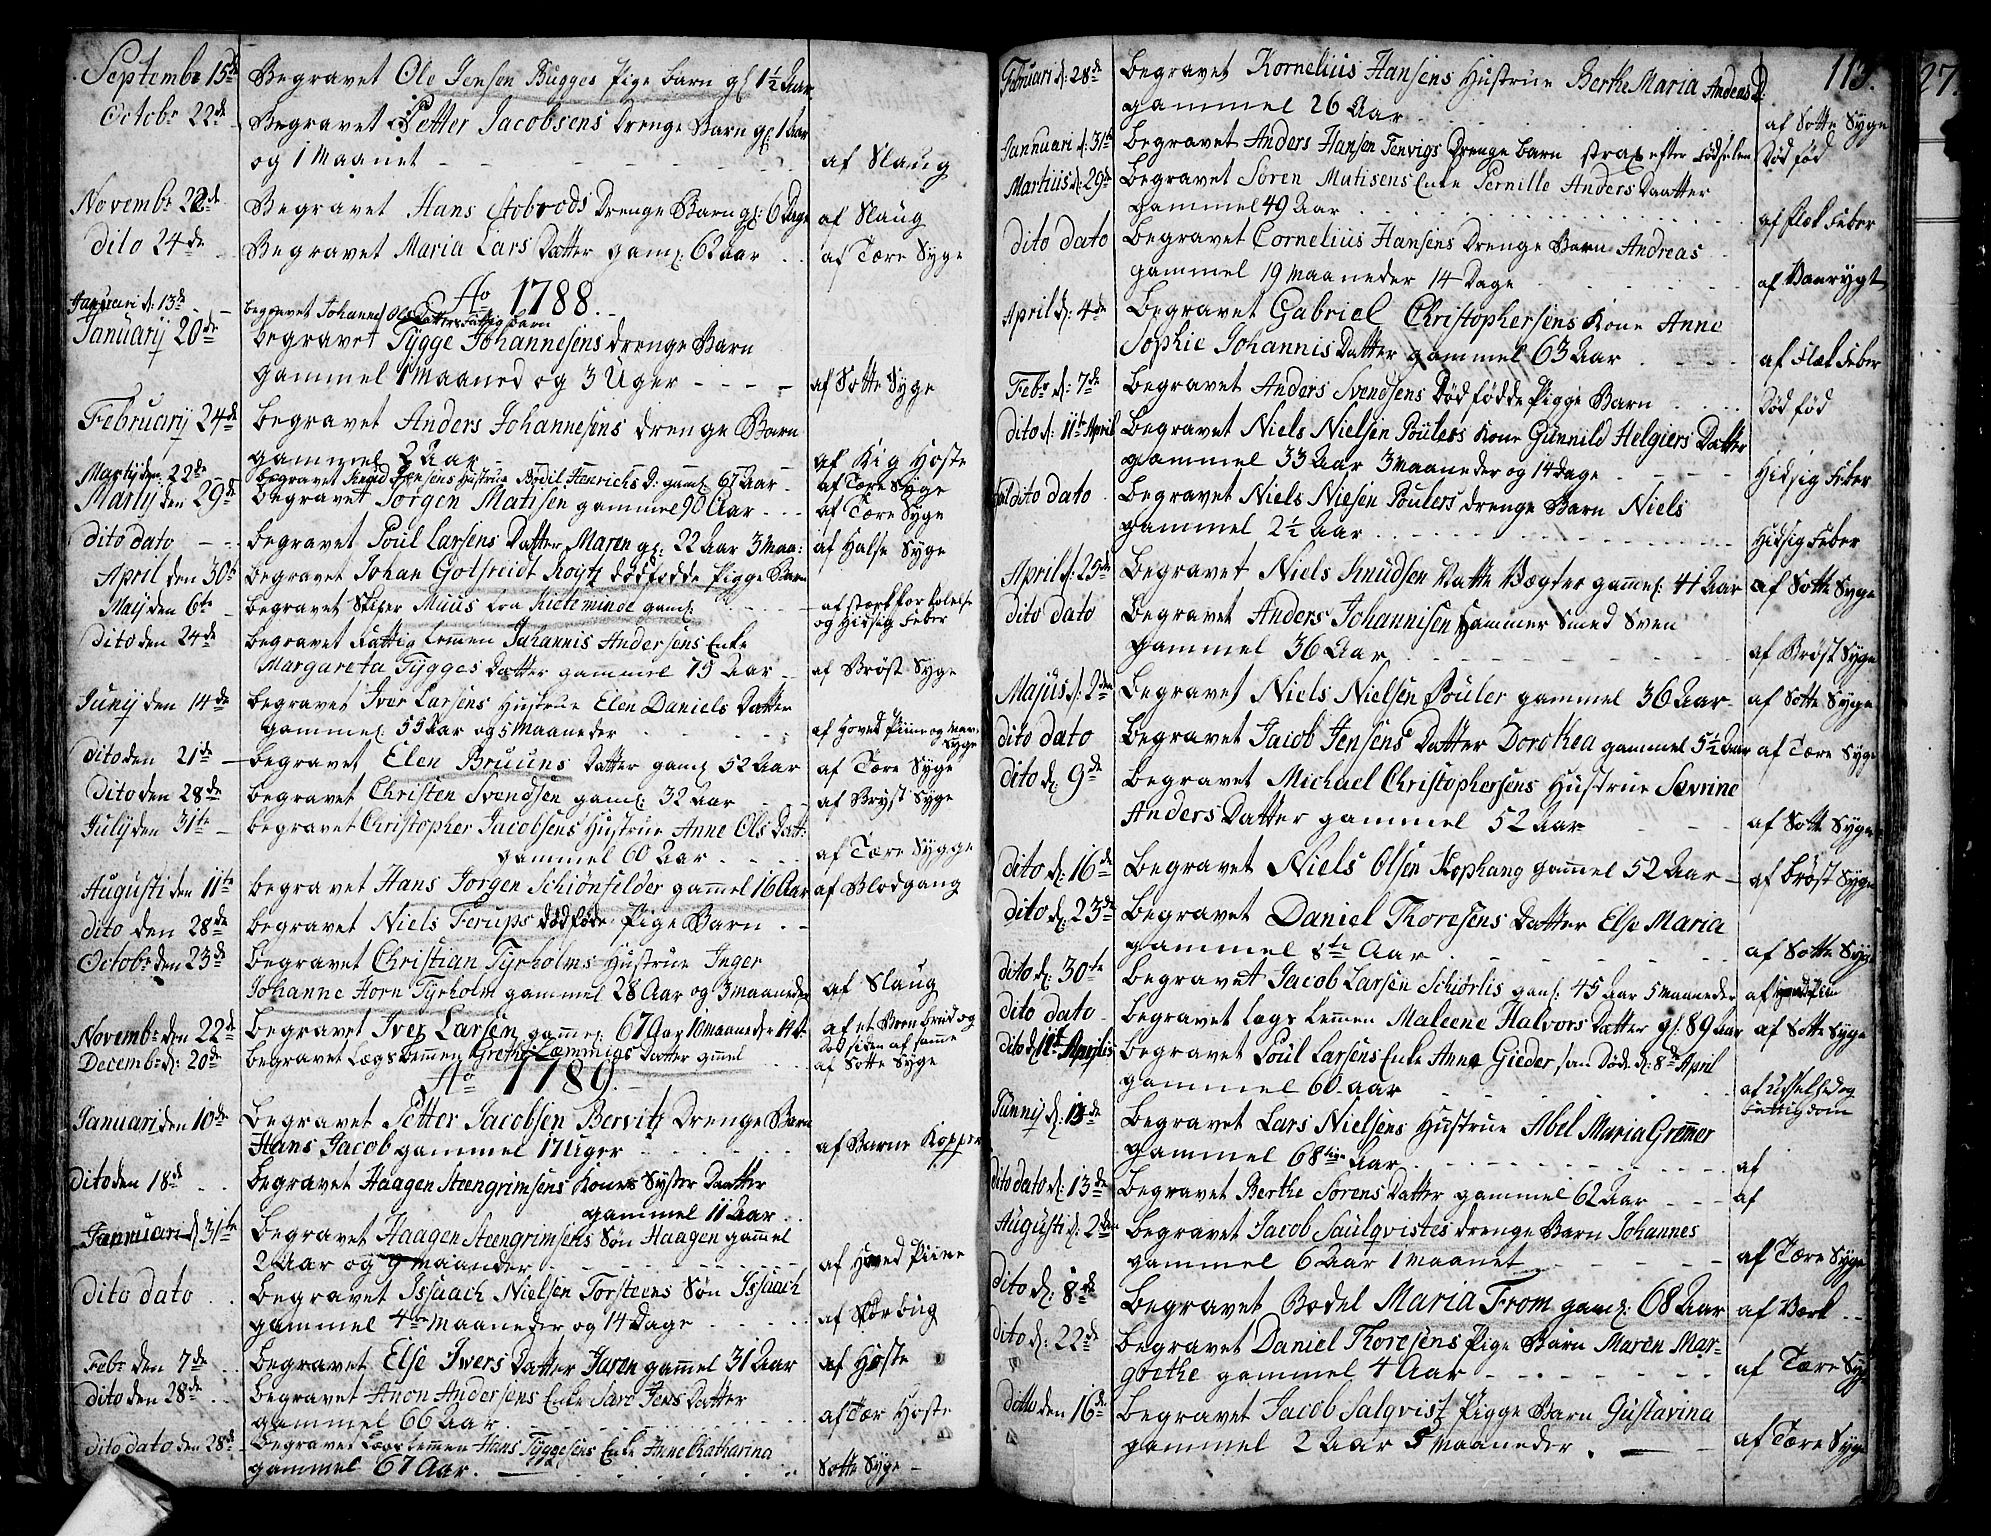 Septembr 15de Begravet Ole Jenson Bugges Pige barn gl 1½ Aar
Octobr 22de Begravet Petter Jacobsens Drenge Barn gl: 1 Aar
og 1 Maanet - af Slaug
Novembr 22de Begravet Hans Stobrods Drenge Barn gl: 6 Dage af Slaug
dito 24de Begravet Maria Lars Datter gaml: 62 aar af Tære Syge
Ao 1788.
Januari d: 13de begravet Johannes Ols Datters fattig barn
Januarij 20de begravet Tygge Johannesens drenge Barn
gammel 1 Maaned og 3 Uger - af Sotte Syge
Februarij 24de begravet Anders Johannesens drenge Barn
gammel 2 Aar af Kig Hoste
Martij den 22de begravet Knud Jensens Hustrue Bodil Henrichs D. gaml 67 Aar af Tære Syge
Martij den 29de begravet Jorgen Matisen gammel 90 Aar - af Tære Syge
dito dato - begravet Poul Larsens Datter Maren gl: 22 Aar 3 Maa: af Halse Syge
April den 30te begravet Johan Golfreidt Roijtz dödfödde Pigge Barn
Maij den 6te - begravet Skiper Muus fra Kieteminde gaml - af stærk forkolelse
og Hidsig Feber
dito den 24de begravet Fattig Lemen Johannis Andersens Enke
Margareta Tygges Datter gammel 75 Aar - af Bröst Syge
Junij den 14de begravet Iver Larsens Hustrue Elen Daniels Datter
gammel 55 Aar og 5 Maaneder af Hoved Piine og
Syge
dito den 21de - begravet Elen Bruuns Datter gaml 52 Aar af Tære Syge
Dito den 28de begravet Christen Svendsen gaml: 32 aar af Bryst Syge
Julij den 31te - begravet Christopher Jacobsens Hustrue Anne Ols Datt:
gammel 60 Aar. af Tære Sygge
Augusti den 11te begravet Hans Jorgen Schiönfelder gammel 16 Aar af Blodgang
dito den 28de begravet Niels Ferups dödföde Pige Barn
Octobr den 23de begravet Christian Tyrholms Hustrue Inger
Johanne Horn Tyrholm gammel 28 Aar og 3 maaneder af Slaug
Novembr den 22de begravet Iver Larsen gammel: 67 Aar 10 maaneder 14 d: af et Been brud og
Död siden af samme
Decembr d: 20de begravet Lægs Lemmen Grethe Lammigs Datter gmel af Sotte Syge
Ao 1789.
Januari den 10de begravet Petter Jacobsen Bervitz Drenge Barn
Hans Jacob gammel 17 Uger af Barne Kopper
dito den 18de begravet Haagen Steengrimsens Kones Syster Daatter
gammel 11 Aar
Januari d 31te begravet Haagen Steengrimsens Sön Haagen gammel
2 Aar og 9 maander af Hoved Piine
dito dato begravet Issaach Nielsen Torsteens Sön Issaach
gammel 4re Maaneder og 14 Dage
Febr den 7de begravet Else Ivers Datter Juren gammel 31 Aar af Hoste
dito den 28de begravet Anon Andersens Enke Sare Jens Datter
gammel 66 Aar. af Tær Hoste
dito dato den 28de begravet Lægs Lemmen Hans Tyggesens Enke Anne Katharina
gammel 67 Aar. Sotte Syge
113. 27
Januari d: 28de begravet Kornelius Hansens Hustrue Berthe Maria Andeas D.
gammel 26 Aar af Sotte Syge
Jannuari d: 31te begravet Anders Hansen Tenvigs Drenge barn strax efter födselen Död föd
Martius d: 29de begravet Sören Matisens Enke Pernille Anders Daatter
gammel 49 Aar af Flek Feber
dito dato begravet Cornelius Hansens Drenge Barn Andreas
gammel 19 maaneder 14 Dage af Vanrygt
April d: 4de begravet Gabriel Christophersens Kone Anne
Sophie Johannis Datter gammel 63 Aar af Flek Feber
Febr d: 7de begravet Anders Svendsens Död födde Pigge Barn Död föd
dito d: 11te April begravet Niels Nielsen Poulers Kone Gunnild Helgiers Datter
gammel 33 Aar 3 Maaneder og 14 dage Hidsig Feber
dito dato begravet Niels Nielsen Poulers drenge Barn Niels
gammel 2½ Aar Hidsig Feber
April d: 25de begravet Niels Knudsen Natte Vægter gammel: 41 Aar af Sotte Syge
dito dato begravet Anders Johannisen Hammer Smed Sven
gammel 36 Aar af Bröst Syge
Majus d: 2den begravet Niels Nielsen Pouler gammel 36 Aar af Sotte Syge
dito dato begravet Jacob Jensens Datter Dorothea gammel 5½ Aar af Tære Syge
dito d: 9de begravet Michael Christophersens Hustrue Sævrine
Anders Datter gammel 52 aar af Sotte Syge
dito d: 16de begravet Niels Olsen Kophang gammel 52 Aar af bröst Syge
dito d: 23de begravet Daniel Thoresens Datter Else Maria
gammel 8te Aar af Sotte Syge
dito d: 30te begravet Jacob Larsen Schiörlis gaml: 45 Aar 5 Maaneder af
dito dato begravet Lægs Lemmen Maleene Halvors Datter gl: 89 aar af Sotte Syge
dito d 11te Aprilis begravet Poul Larsens Enke Anne Gieder, som Döde d: 8de April
gammel 60 aar af Usselhed og
Fattigdom
Junnij d: 13de begravet Lars Nielsens Hustrue Abel Maria Gremer
gammel 68tive Aar af
dito dato d: 13de begravet Berthe Sörens Datter gammel 62 Aar af
Augusti d: 2den begravet Jacob Saulqvistes drenge Barn Johannes
gammel 6 Aar 1 Maanet af Tære Syge
dito d: 8de begravet Bodel Maria From gaml: 68 Aar af Værk
dito d: 22de begravet Daniel Thoresens Pige Barn Maren Mar-
grethe gammel 4 Aar af Tære Syge
Ditto den 16de begravet Jacob Salqvist Pigge Barn Gustavina
gammel 2 Aar 5 Maaneder. af Tære Syge